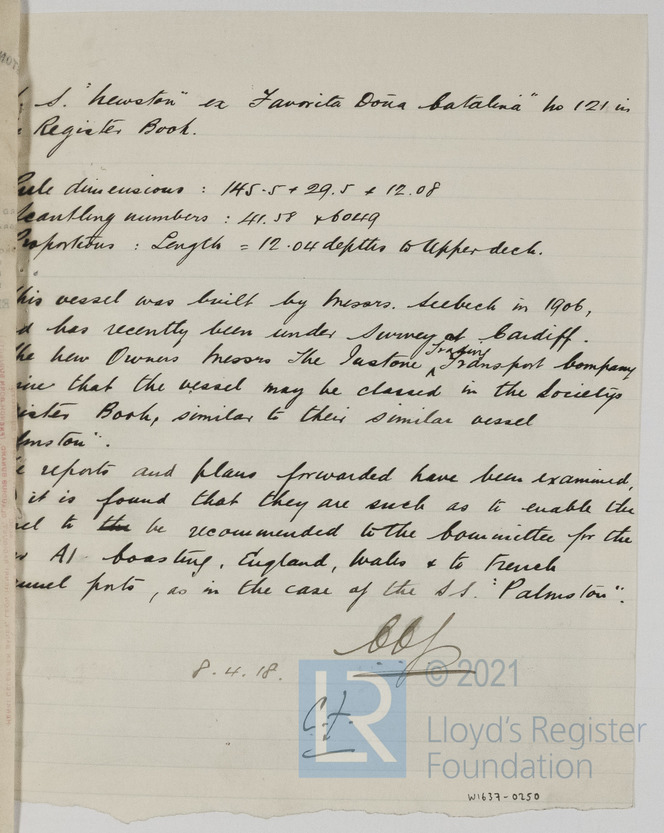 S. "Newston" ex Favorita Doña Catalina" No 121 in
Register Book.
dimensions : 145.5 + 29.5 + 12.08
cantling numbers : 41.58 × 6049
roportions : Length = 12.04 depths to Upper deck.
his vessel was built by Messrs. Seebeck in 1906,
d has recently been under survey at Cardiff.
he new Owners Messrs The Instone Trading Transport Company
ire that the vessel may be classed in the Societys
ister Book, similar to their similar vessel
lmston".
e reports and plans forwarded have been examined,
it is found that they are such as to enable the
sel to the be recommended to the Committee for the
A1 Coasting, England, Wales & to French
annel ports, as in the case of the S.S. "Palmston".
8.4.18.
LR
© 2021
Lloyd's Register
Foundation
W1637-0250